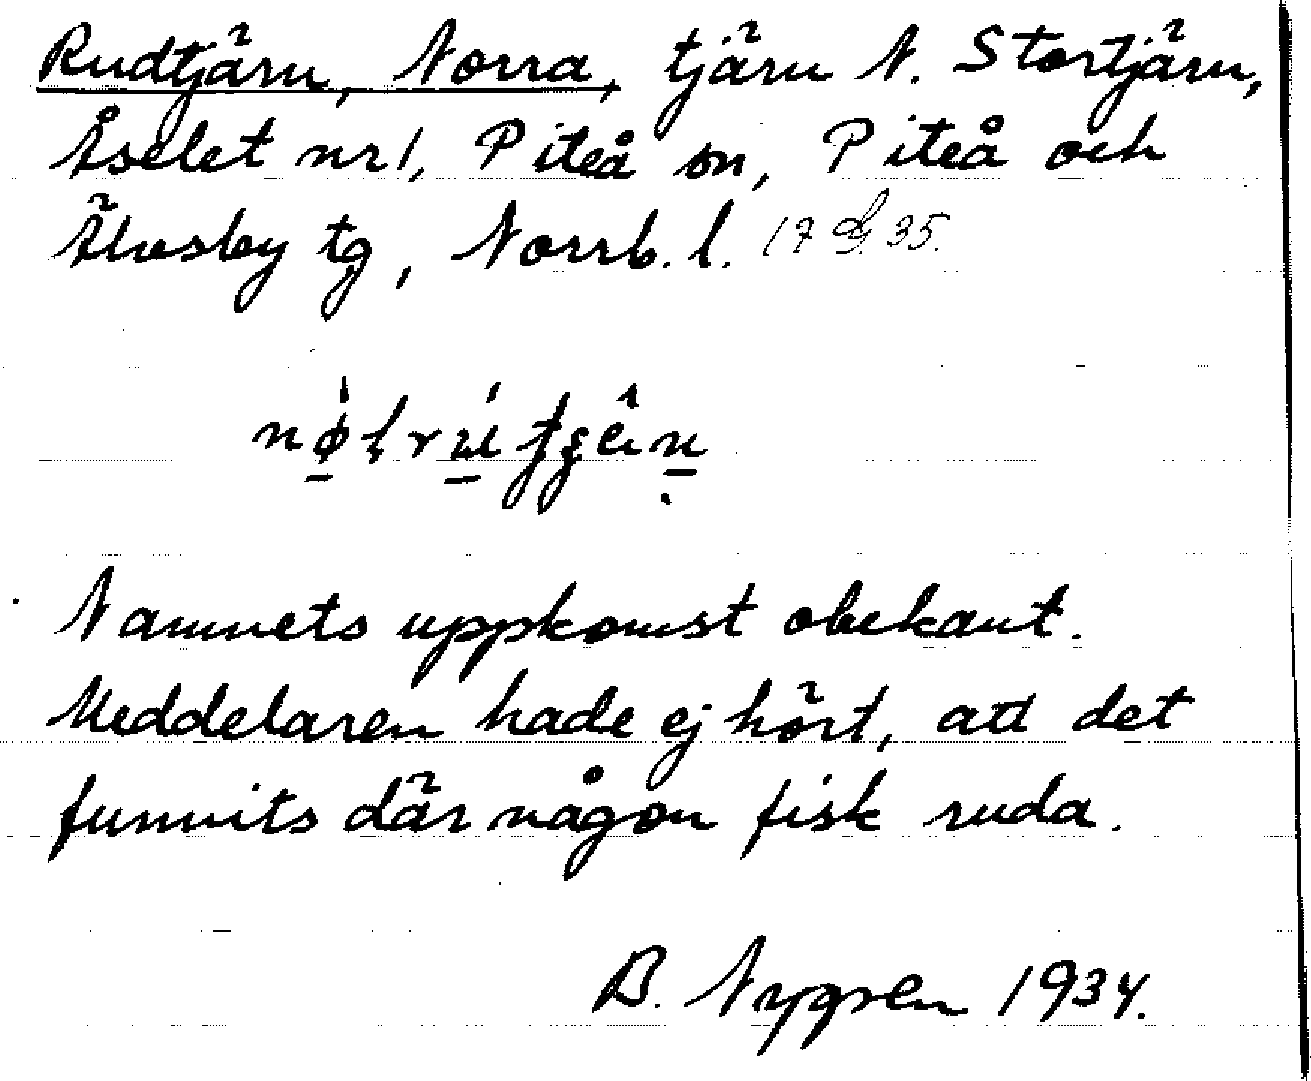 Rudtjärn, Norra, tjärn N. Stortjärn,
Åselet nr 1, Piteå sn, Piteå och
Älvsby tg, Norrb. l. 17 35.
Namnets uppkomst obekant.
Meddelaren hade ej hört, att det
funnits där någon fisk ruda.
B. Nygren 1934.